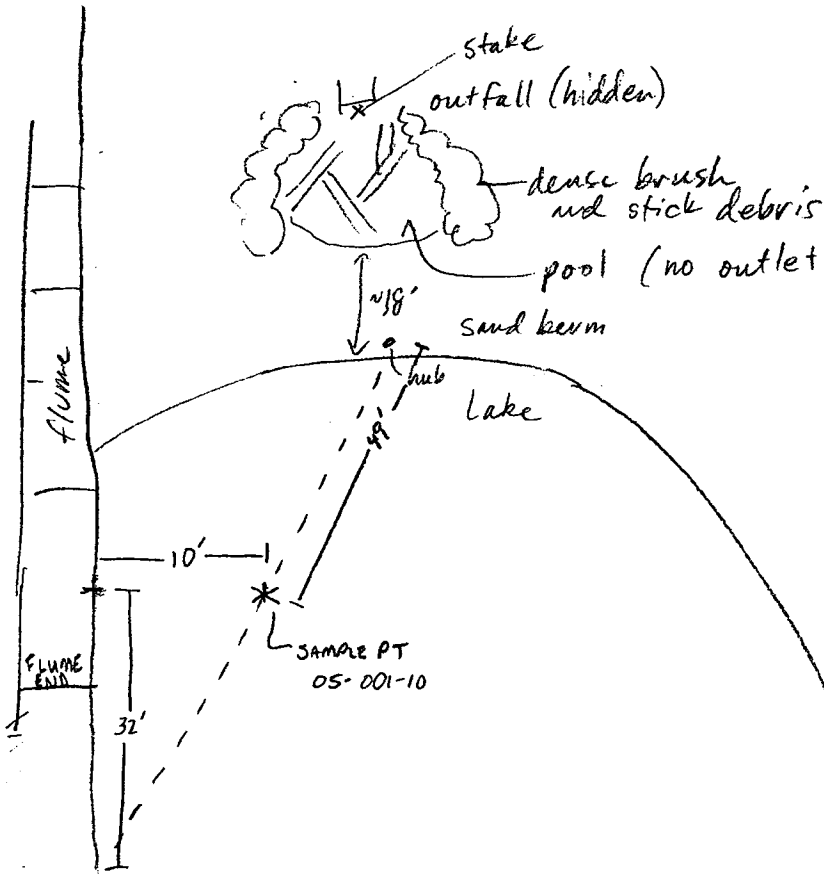 stake
outfall (hidden)
dense brush
and stick debris
pool (no outlet
~18'
sand berm
hub
Lake
49'
flume
10'
SAMPLE PT
05-001-10
FLUME
END
32'